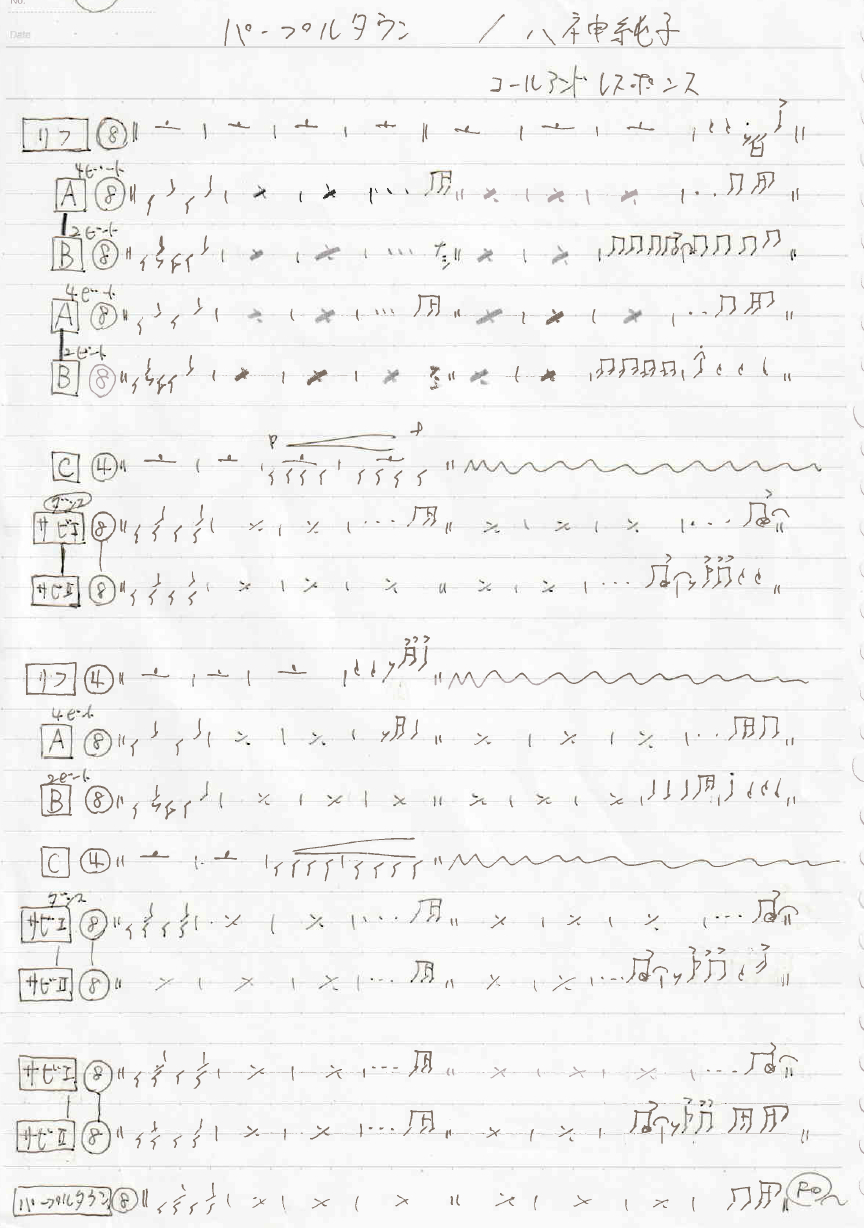 No.
Date
パープルタウン / 八神純子
コールアンドレスポンス
リフ ⑧
4ビート
A ⑧
2ビート
B ⑧
4ビート
A ⑧
2ビート
B ⑧
C ④
サビI ⑧
サビII ⑧
リフ ④
4ビート
A ⑧
2ビート
B ⑧
C ④
サビI ⑧
サビII ⑧
サビI ⑧
サビII ⑧
パープルタウン ⑧ FO